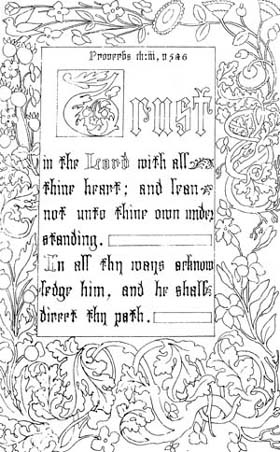 Proverbs ch:iii, v 5 & 6
Trust
in the Lord with all
thine heart; and lean
not unto thine own under
standing.
In all thy ways acknow
ledge him, and he shall
direct thy path.